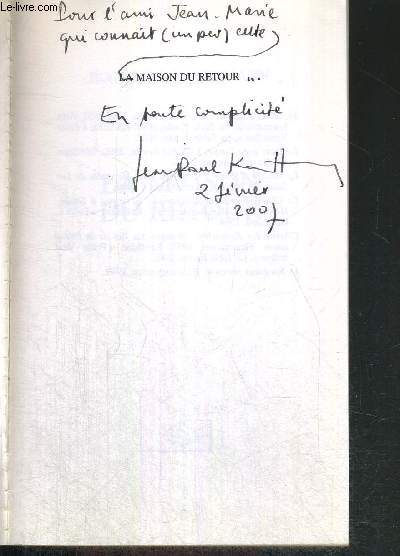 Le-livre.com
Pour l'ami Jean-Marie
qui connaît (un peu) cette
LA MAISON DU RETOUR ...
En toute complicité
Jean Paul K
2 février
2007